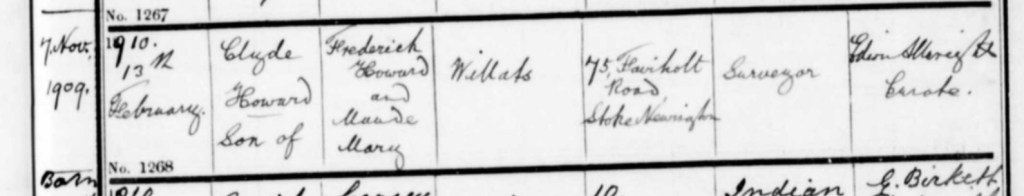 No. 1267
7 Nov.
1909.
1910.
13th
February.
Clyde
Howard
Son of
Frederick
Howard
and
Maude
Mary
Willats
75,
Road
Stoke Newington
Surveyor
Edwin
Curate.
No. 1268
Born
Indian
E. Birkett